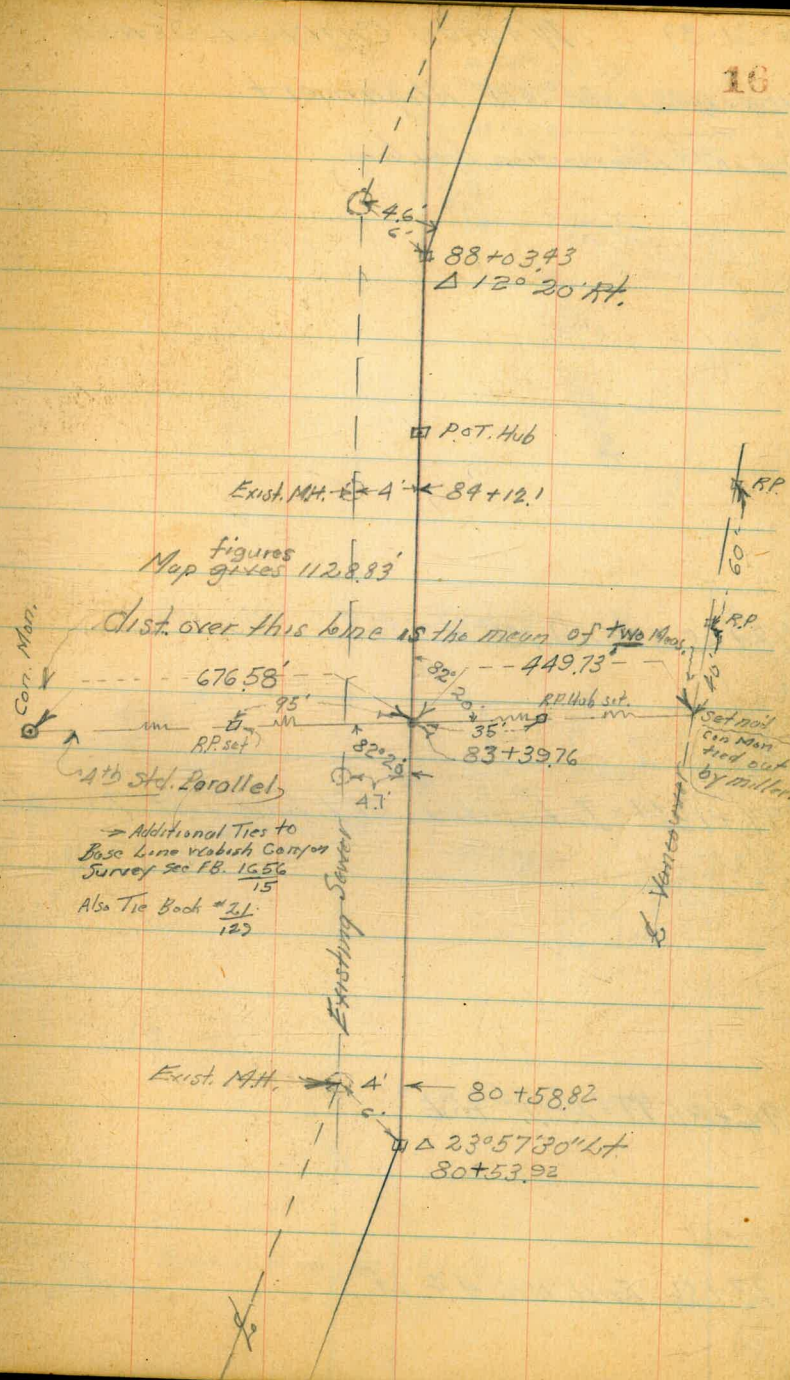 16
4.6'
6'
88+03.43
Δ 12° 20' Rt.
P.O.T. Hub
Exist. M.H. 4' 84+12.1
R.P.
60'
figures
Map gives 1128.83'
Con. Mon.
dist. over this line is the mean of two Meas.
R.P.
40'
676.58'
82° 20'
449.73'
95'
R.P. Hub set.
R.P. set
35'
Set nail
Con Mon
tied out
by miller
82° 20'
83+39.76
4th Std. Parallel
4.7'
Additional Ties to
Base Line Canyon
Survey see F.B. 1656
15
Also Tie Book #21
122
Existing Sewer
℄ Vancouver
Exist. M.H. 4' 80+58.82
6'
Δ 23°57'30" Lt
80+53.92
℄